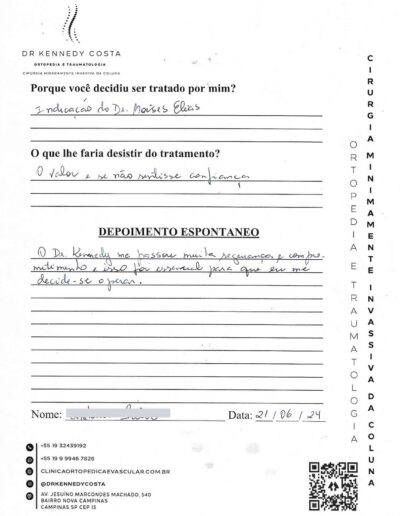 DR KENNEDY COSTA
ORTOPEDIA E TRAUMATOLOGIA
CIRURGIA MINIMAMENTE INVASIVA DA COLUNA
Porque você decidiu ser tratado por mim?
Indicação do Dr. Moises Elias
O que lhe faria desistir do tratamento?
O valor e se não sentisse confiança
DEPOIMENTO ESPONTANEO
O Dr. Kennedy me passou muita segurança e compro-
mitimento e isso foi essencial para que eu me
decide-se operar.
Nome:
Data: 21/06/24
+55 19 32439192
+55 19 9 9946 7826
CLINICAORTOPEDICAEVASCULAR.COM.BR
@DRKENNEDYCOSTA
AV. JESUÍNO MARCONDES MACHADO, 540
BAIRRO NOVA CAMPINAS
CAMPINAS SP CEP 13
ORTOPEDIA E TRAUMATOLOGIA
CIRURGIA MINIMAMENTE INVASSIVA DA COLUNA